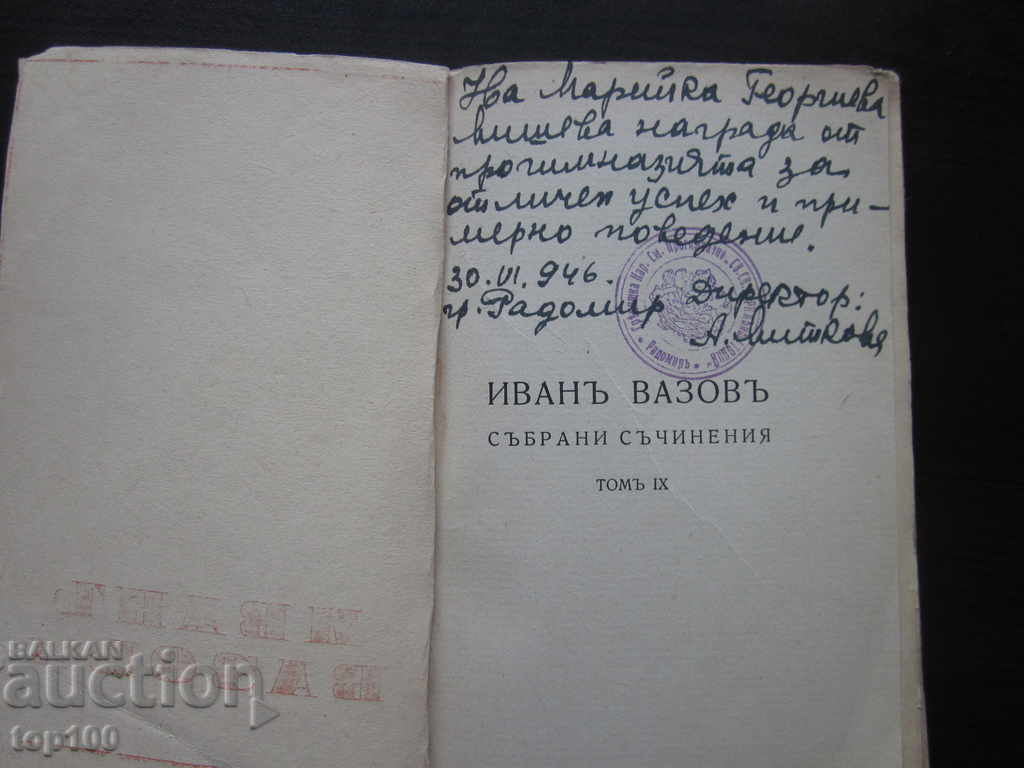 На Марийка Георгиева
Мишева награда от
прогимназията за
отличен успех и при-
мерно поведение.
30.VI.946.
гр. Радомир Директор:
А. Миткова
Радомиръ
ИВАНЪ ВАЗОВЪ
СЪБРАНИ СЪЧИНЕНИЯ
ТОМЪ IX
ИВАНЪ
ВАЗОВЪ
BALKAN
auction
top100